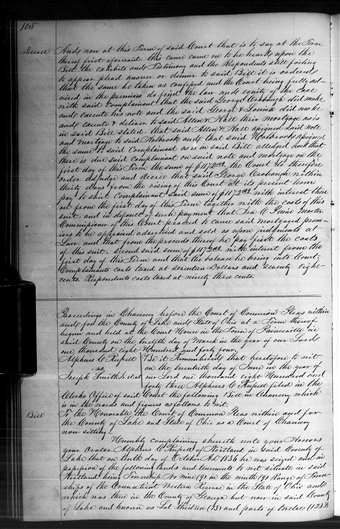 106
Decree And now at this Term of said Court that is to say at the Term
thereof first aforesaid this cause came on to be heard upon the
Bill the exhibits and Testimony and the Respondents still failing
to appear plead answer or demur to said Bill it is ordered
that the same be taken as confessed and the Court being fully ad-
vised in the premises do find the law and equity of the case
with said Complainant that the said George did make
and execute his note and the said did make
and execute deliver to said Allen & Hall their mortgage as is
in said Bill stated that said Allen & Hall assigned said note
and mortgage to said Holbrook and that said Holbrook assigned
the same to said Complainant as is in said Bill alledged and that
there is due said Complainant on said note and mortgage on the
first day of this Term the sum of the Court do therefore
order adjudge and decree that said George within
thirty days from the rising of this Court
pay to said Complainant said sum of with interest there
on from the first day of this Term together with the costs of this
suit and in default of such payment that Master
Commissioner of this Court proceed to cause said mortgaged prem-
ises to be appraised advertised and sold as upon judgments at
Law and that from the proceeds thereof he pay first the costs
of this suit. Second said sum of with interest from the
first day of this Term and that the balance he bring into Court
Complainants costs taxed at seventeen Dollars and seventy eight
cents. Respondents costs taxed at ninety three cents
Proceedings in Chancery before the Court of Common Pleas within
and for the County of Lake and State of Ohio at a Term thereof
begun and held at the Court House in the Town of Painesville in
said County on the twelfth day of March in the year of our Lord
one thousand eight Hundred and forty
Alpheus C. Russell Be it Remembered that heretofore to wit
vs on the day of June in the year of
Joseph Smith et al our Lord one thousand eight Hundred and
forty three Alpheus C Russell filed in the
Clerks Office of said Court the following Bill in Chancery which
is in the words and figures as follows to wit
Bill To the Honorable the Court of Common Pleas within and for
the County of Lake and State of Ohio as a Court of Chancery
now sitting
Humbly complaining sheweth unto your Honors
your Orator Alpheus C Russell of Kirtland in said County of
Lake that on tenth day of October AD 1836 he was seized and in
possession of the following lands and tenements to wit situate in said
Kirtland being Township No nine (9) in the ninth (9) Range of Town-
ships of the Connecticut Western Reserve in the State of Ohio and
which was then in the County of Geauga but now is in said County
of Lake and known as Lot thirteen (13) and parts of